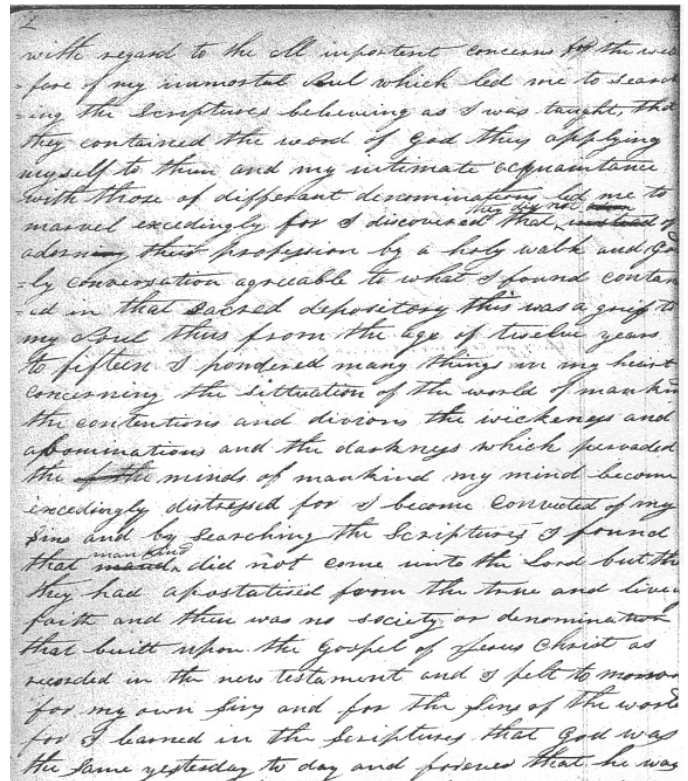 2
with regard to the all importent concerns for the wel
=fare of my immortal Soul which led me to search
=ing the Scriptures believeing as I was taught, that
they contained the word of God thus applying
myself to them and my intimate acquaintance
with those of differant denominations led me to
marvel excedingly for I discovered that they did not instead of
adorning their profession by a holy walk and God
=ly conversation agreeable to what I found contain
=ed in that sacred depository this was a grief to
my Soul thus from the age of twelve years
to fifteen I pondered many things in my heart
concerning the sittuation of the world of mankind
the contentions and divions the wickeness and
abominations and the darkness which pervaded
the of the minds of mankind my mind become
excedingly distressed for I become convicted of my
Sins and by Searching the Scriptures I found
that mand mankind did not come unto the Lord but that
they had apostatised from the true and liveing
faith and there was no society or denomination
that built upon the Gospel of Jesus Christ as
recorded in the new testament and I felt to mourn
for my own Sins and for the Sins of the world
for I learned in the Scriptures that God was
the Same yesterday to day and forever that he was